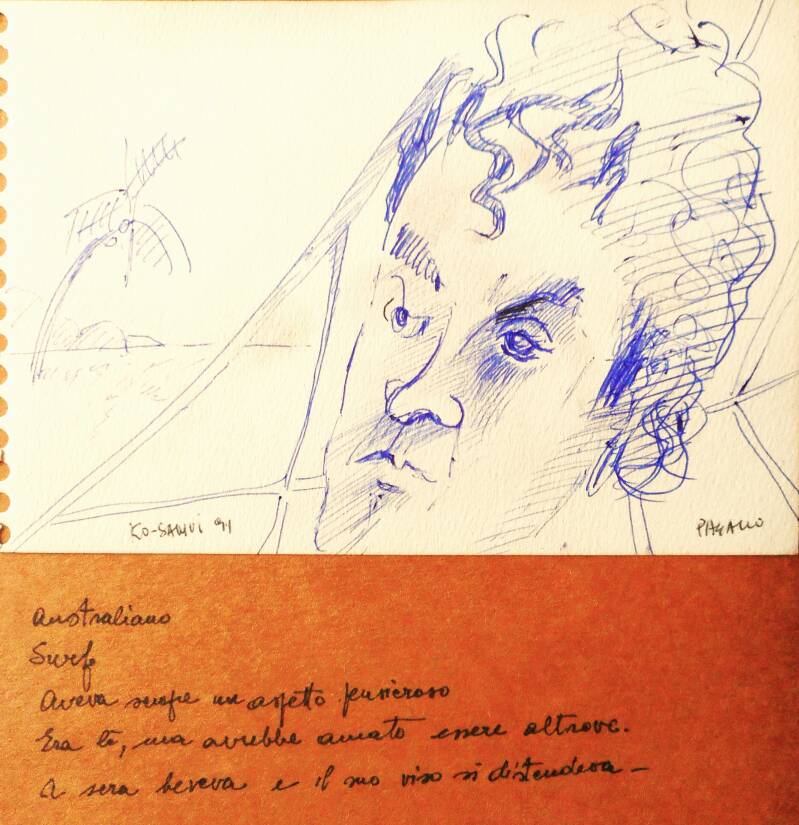 KO-SAMUI '91
PAGANO
Australiano
Surf
Aveva sempre un aspetto pensieroso
Era lì, ma avrebbe amato essere altrove.
A sera beveva e il suo viso si distendeva –